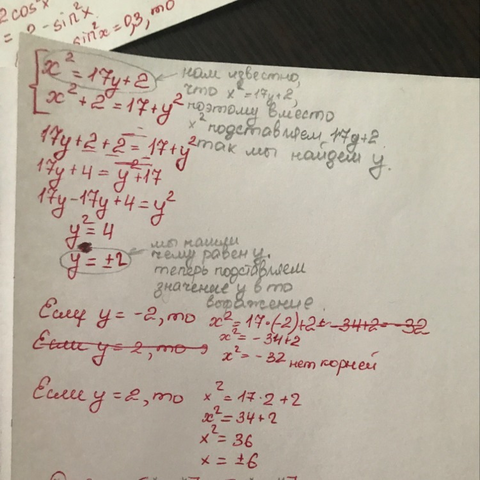 2cos²x
= 2 - sin²x
sin²x = 0,3, то
x² = 17y + 2
x² + 2 = 17 + y²
нам известно,
что x² = 17y + 2,
поэтому вместо
x² подставляем 17y + 2
так мы найдем y.
17y + 2 + 2 = 17 + y²
17y + 4 = y² + 17
17y - 17y + 4 = y²
y² = 4
y = ±2
мы нашли
чему равен y.
теперь подставляем
значение y в то
выражение.
Если y = -2, то x² = 17·(-2) + 2 = -34 + 2 = -32
Если y = 2, то
x² = -34 + 2
x² = -32 нет корней
Если y = 2, то x² = 17·2 + 2
x² = 34 + 2
x² = 36
x = ±6